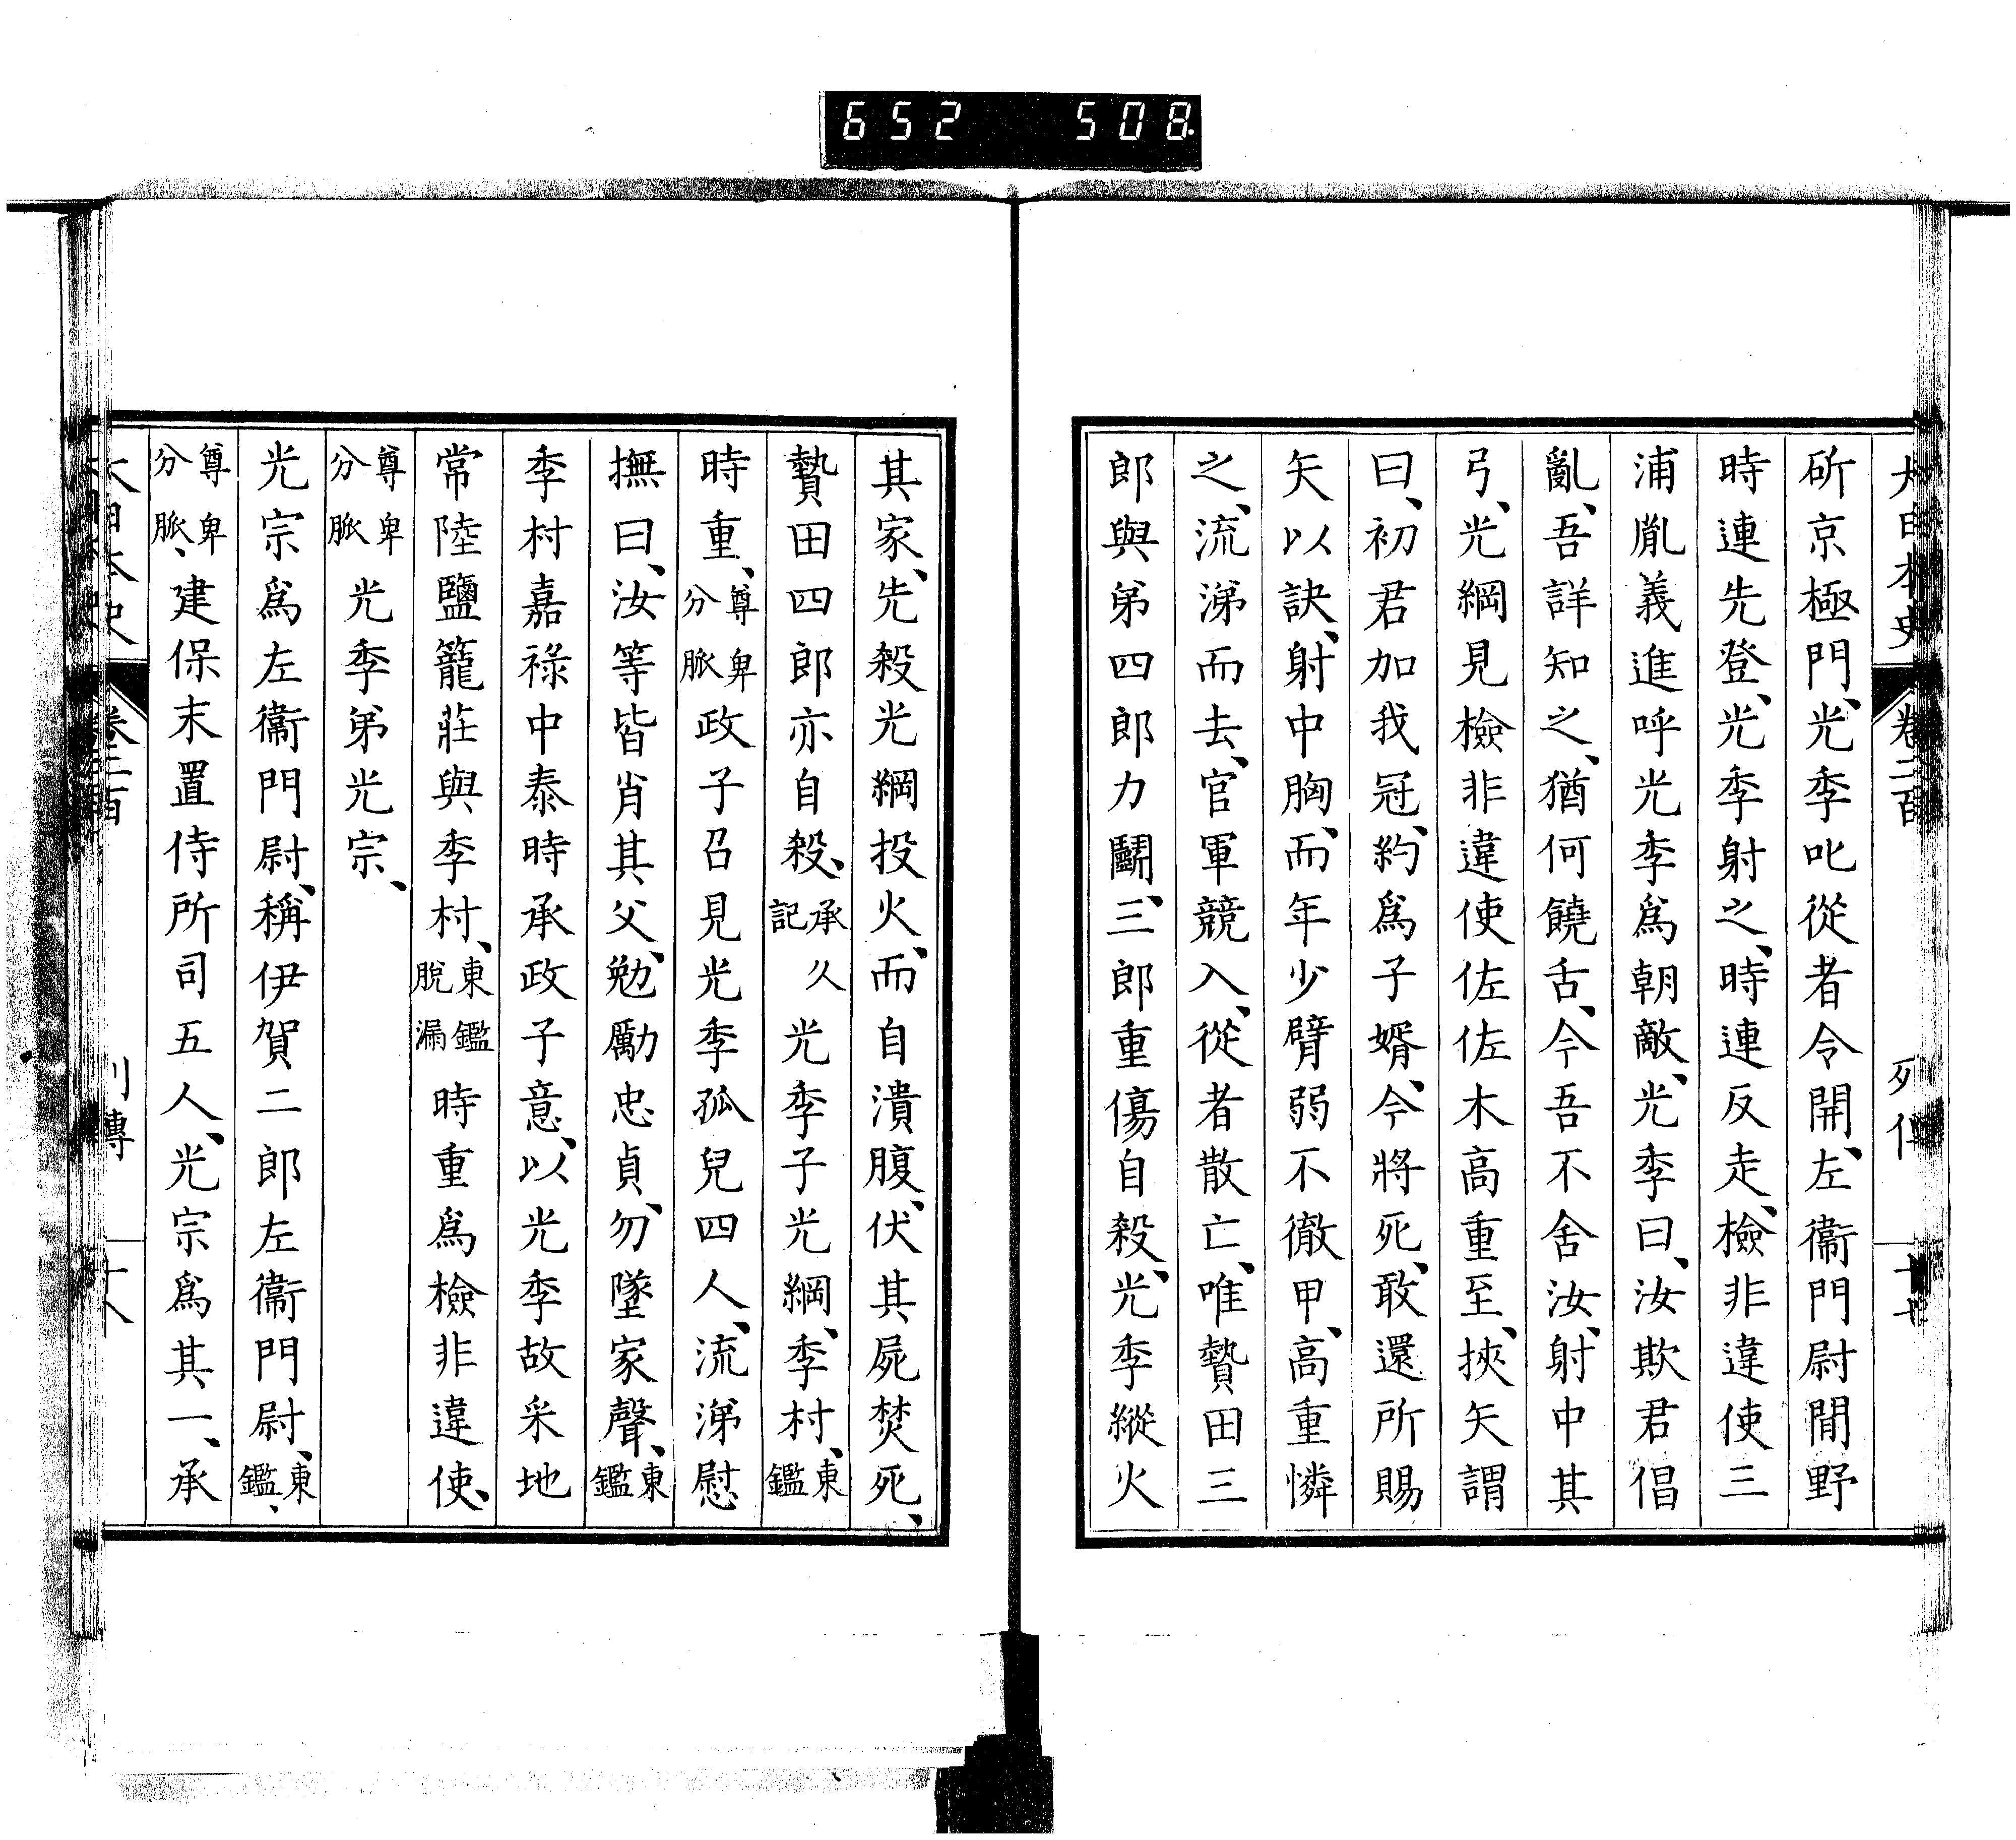 652 508
大日本史 卷二百 列傳 十七
斫京極門、光季叱從者令開、左衞門尉間野
時連先登、光季射之、時連反走、檢非違使三
浦胤義進呼光季爲朝敵、光季曰、汝欺君倡
亂、吾詳知之、猶何饒舌、今吾不舍汝、射中其
弓、光綱見檢非違使佐佐木高重至、挾矢謂
曰、初君加我冠、約爲子婿、今將死、敢還所賜
矢以訣、射中胸、而年少臂弱不徹甲、高重憐
之、流涕而去、官軍競入、從者散亡、唯贄田三
郎與弟四郎力鬭、三郎重傷自殺、光季縱火
其家、先殺光綱投火、而自潰腹、伏其屍焚死、
贄田四郎亦自殺、承久記 光季子光綱、季村、東鑑
時重、尊卑分脈 政子召見光季孤兒四人、流涕慰
撫曰、汝等皆肖其父、勉勵忠貞、勿墜家聲、東鑑
季村嘉祿中泰時承政子意、以光季故采地
常陸鹽籠莊與季村、東鑑脫漏 時重爲檢非違使、
尊卑分脈 光季弟光宗、
光宗爲左衞門尉、稱伊賀二郎左衞門尉、東鑑、
尊卑分脈、建保末置侍所司五人、光宗爲其一、承
大日本史 卷二百 列傳 十八